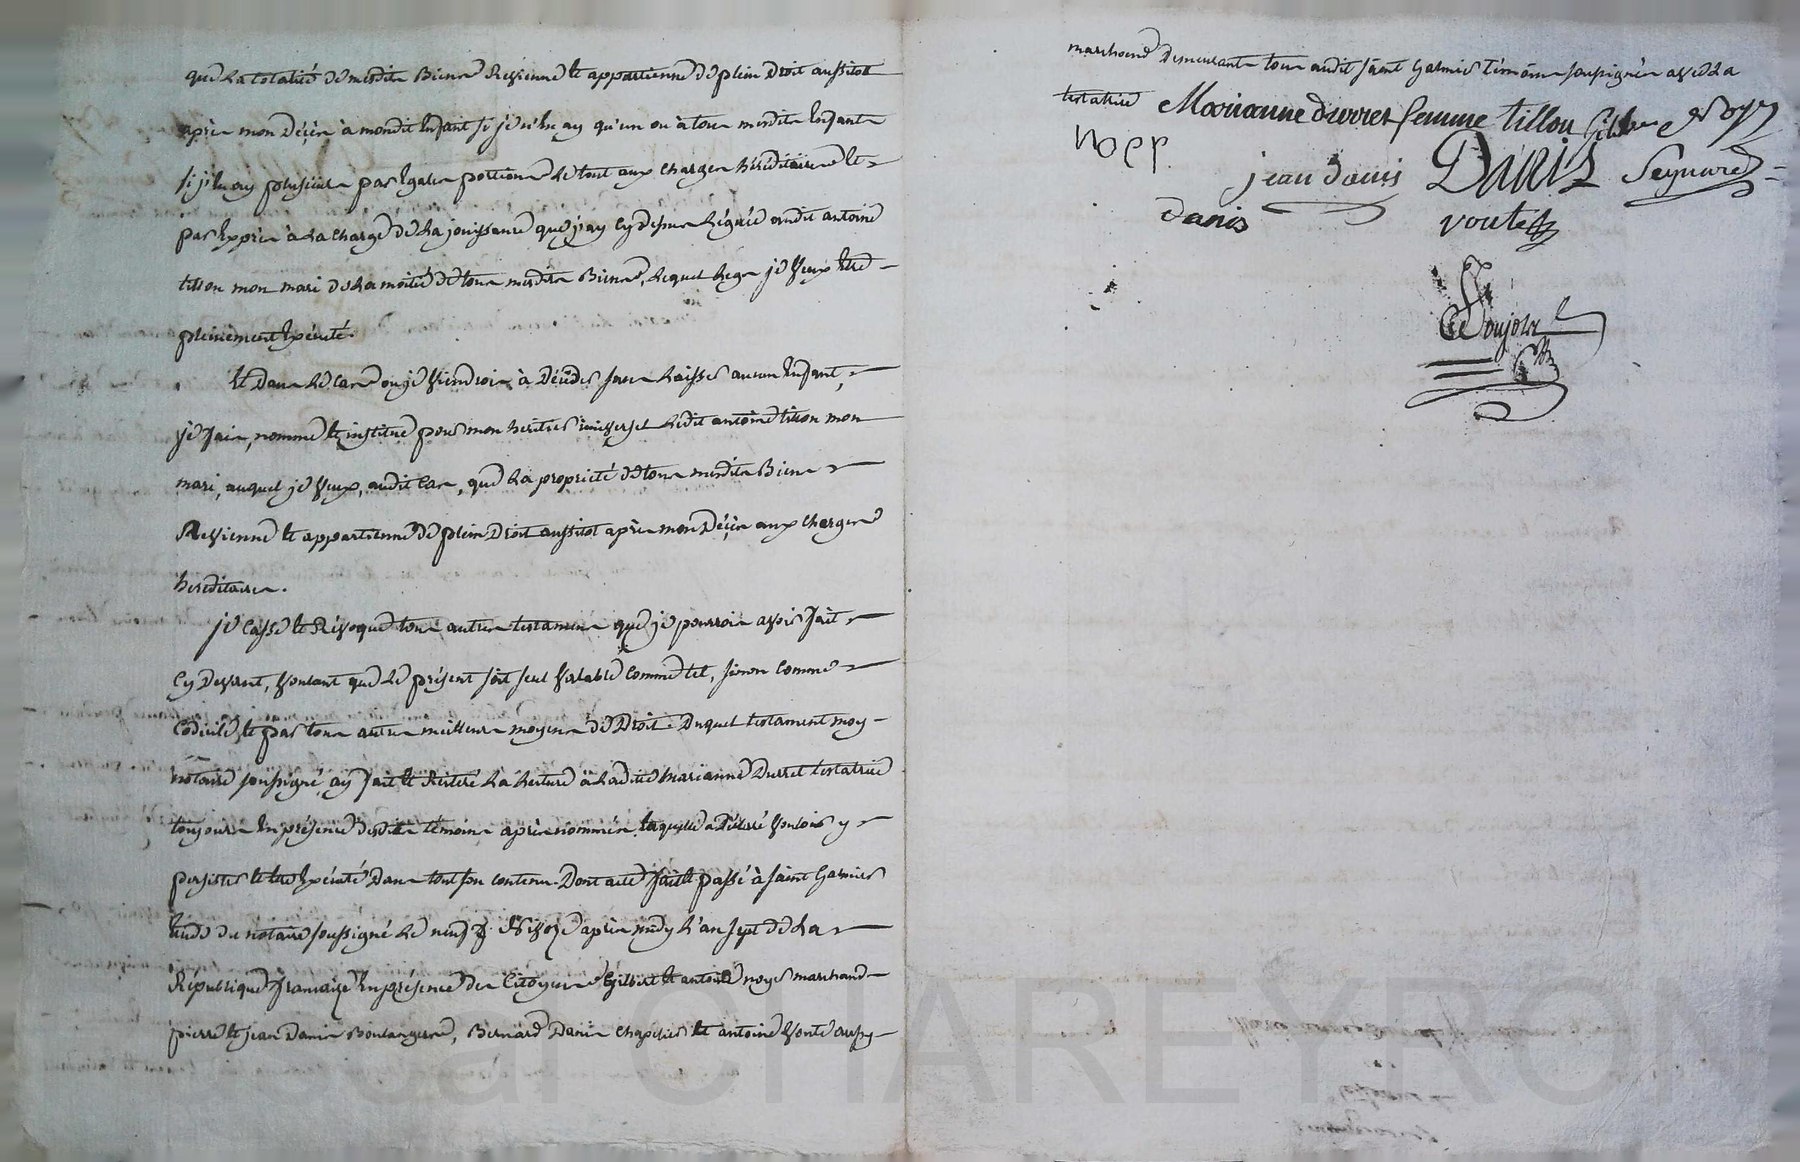 que la totalité de mesdits Biens Revienne et appartienne de plein Droit aussitot
après mon Décès à mondit Enfant si je n'en ay qu'un ou à tous mesdits Enfants
si j'en ay plusieurs par Egales portions le tout aux charges héréditaires et
par Exprès à la charge de la jouissance que j'ay Cy dessus Léguée audit antoine
tillon mon mari de la moitié de tous mesdits Biens, lequel Legs je Veux être
pleinement Exécuté.
Et Dans le Cas ou je Viendrois à Décéder sans Laisser aucun Enfant,
je fais, nomme et institue pour mon heritier universel ledit antoine tillon mon
mari, auquel je Veux, audit Cas, que la propriété de tous mesdits Biens
Revienne et appartienne de plein Droit aussitot après mon Décès aux Charges
hereditaires.
je Casse et Révoque tous autres testamens que je pourrois avoir fait
Cy Devant, Voulant que le présent soit seul Valable Comme tel, sinon Comme
Codicile et par tous autres meilleurs moyens de Droit. Duquel testament moy
notaire soussigné, ay fait et Réitéré la Lecture à ladite Marianne Durret testatrice
toujours En présence desdits témoins après nommés, laquelle a Déclaré Vouloir y
persister et être Exécuté Dans tout son contenu. Dont acte fait et passé à saint Galmier
Etude du notaire soussigné le neuf Nivose après midy L'an sept de La
République française En présence des Citoyens Gilbert et antoine noyer marchand
pierre et jean Danis Boulangers, Bernard Danis Chapelier et antoine Voute aussy
marchand Demeurants tous audit saint Galmier témoins soussignés avec La
testatrice Marianne durret femme tillon Gilbert Noyer
noer
jean danis DANIS Seguare
danis voute
Coujolet